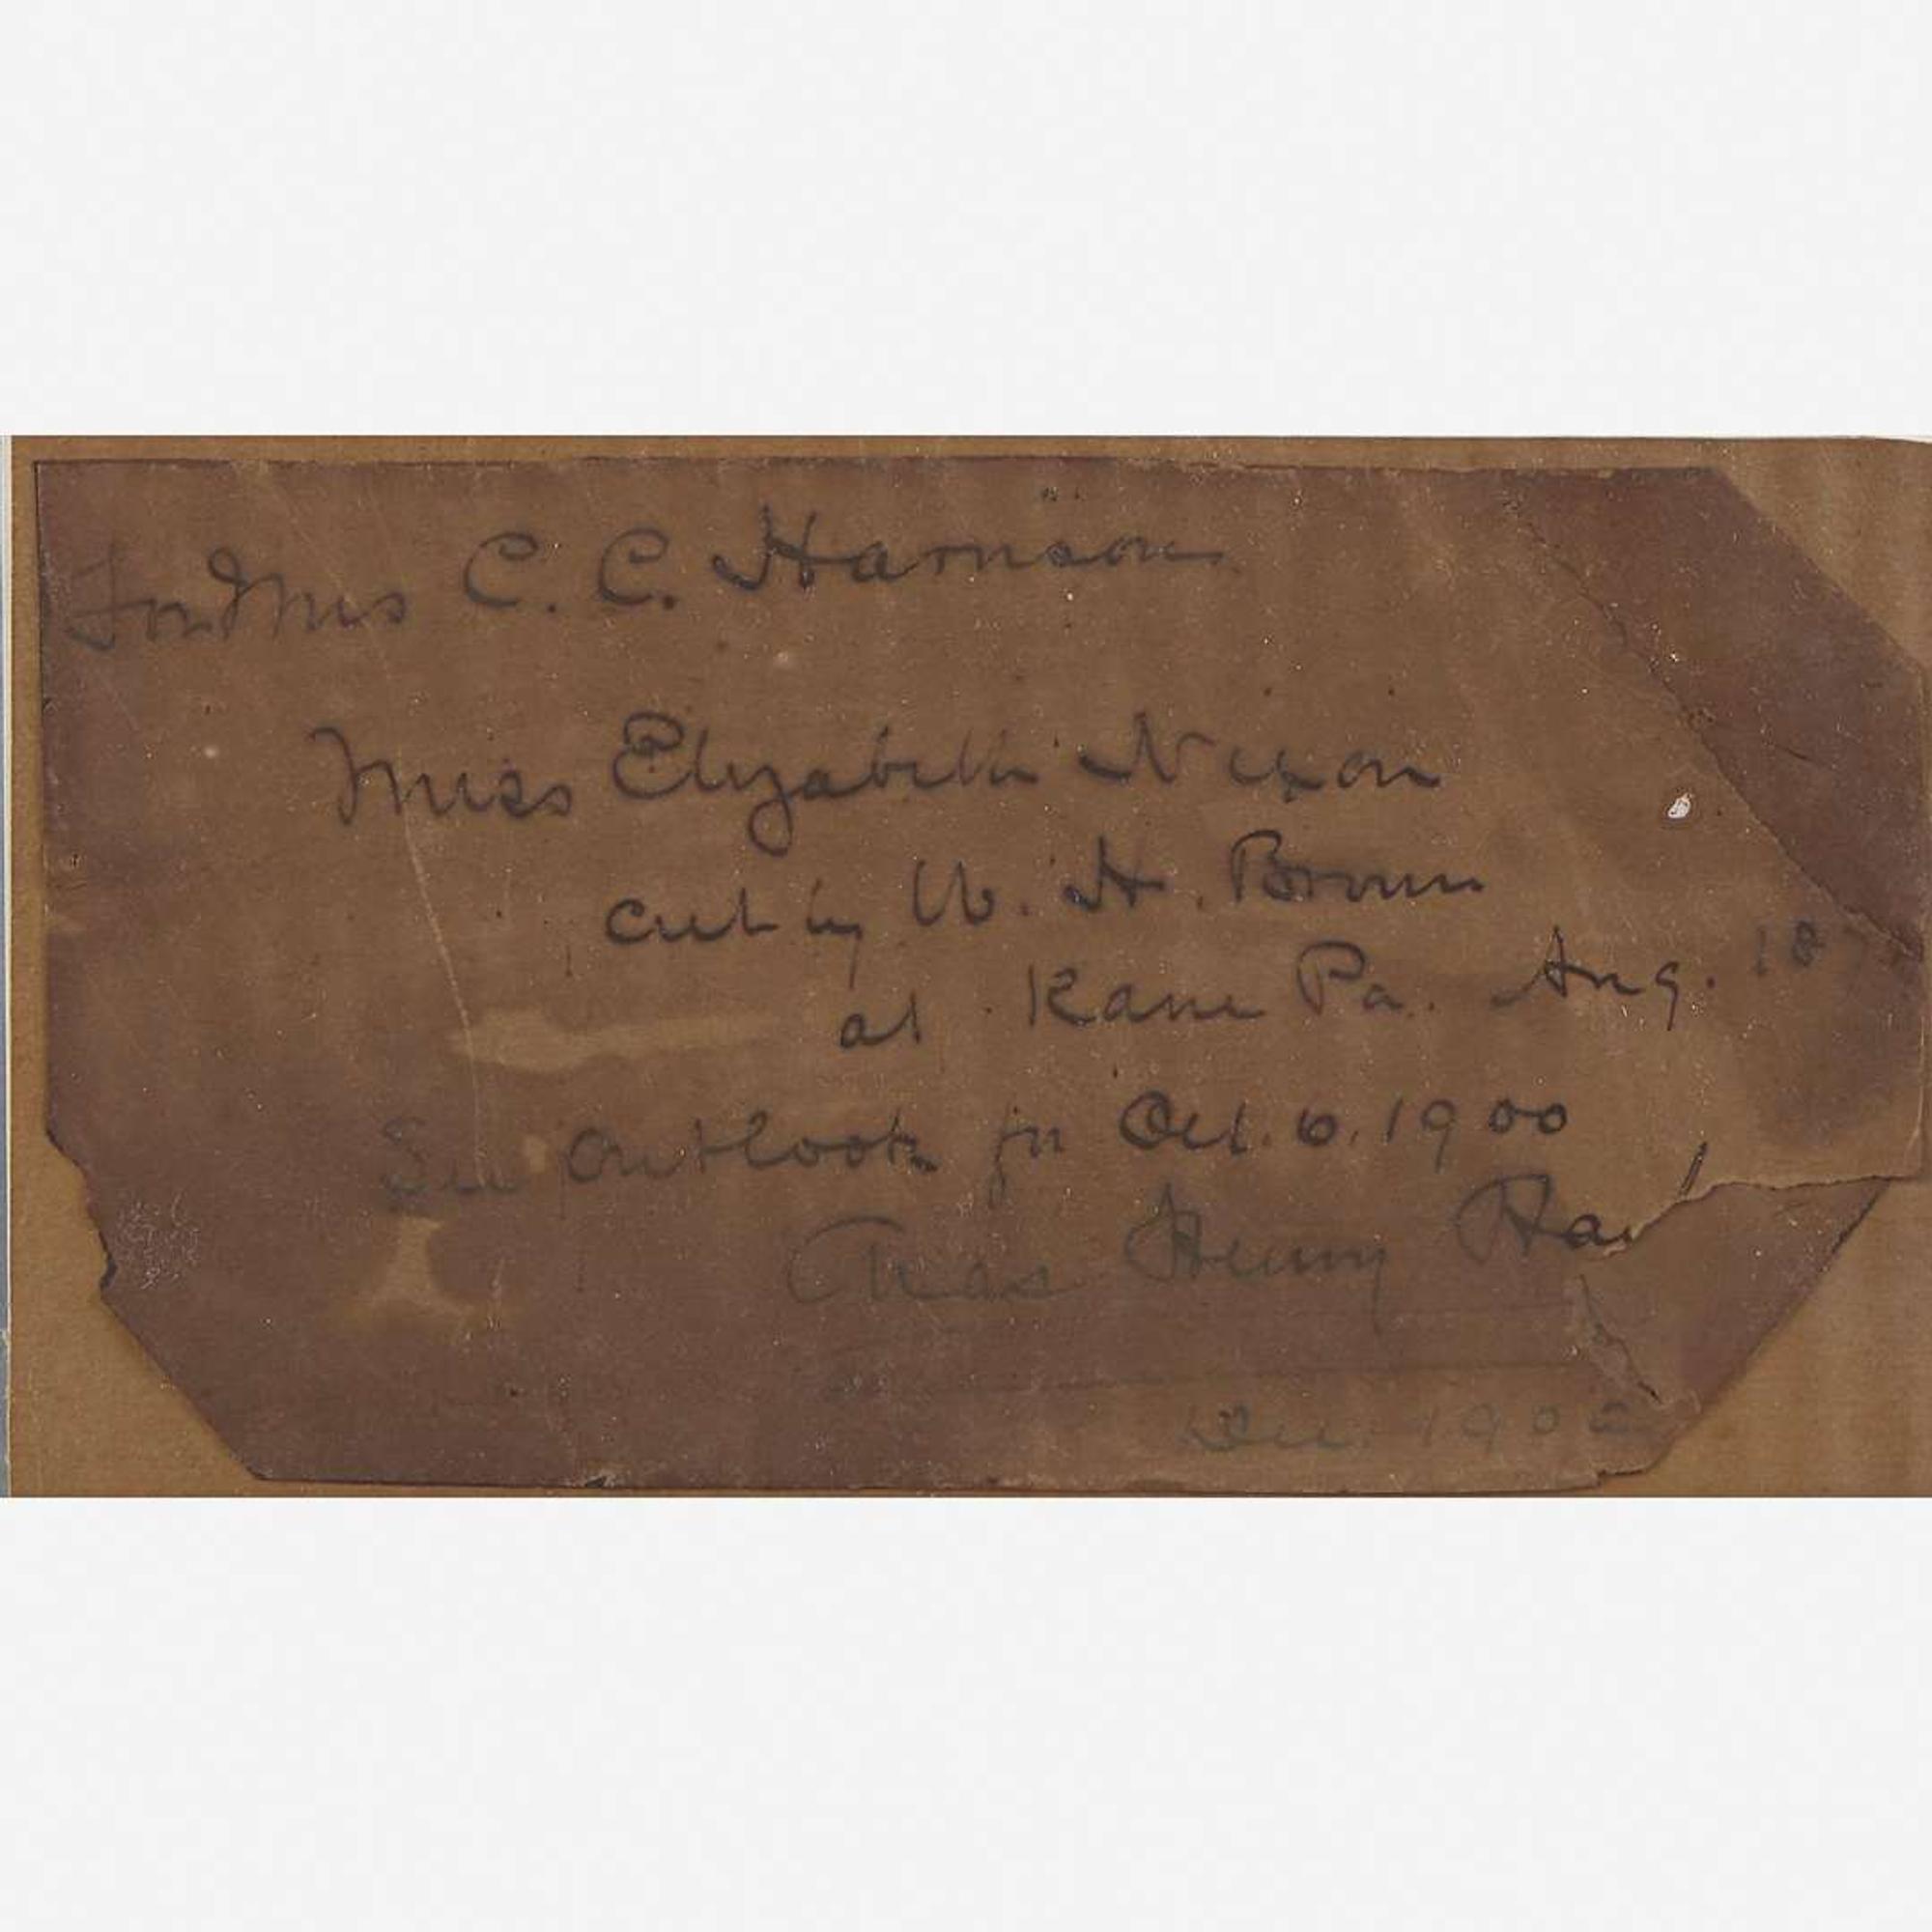 For Mrs C. C. Harrison
Miss Elizabeth Nixon
cut by W. H. Brown
at Kane Pa. Aug. 187
See Outlook for Oct. 6. 1900
Chas Henry
Dec. 1902